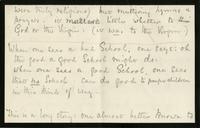 were truly religious), but muttering hymns &
prayers: it matters little whether to the
God or the Virgin: (it was to the Virgin)
When one sees a bad School, one says: oh
the good a Good School might do:
When one sees a good School, one sees
that no School can do good to
in this kind of way.
This is a long story: one almost better known to